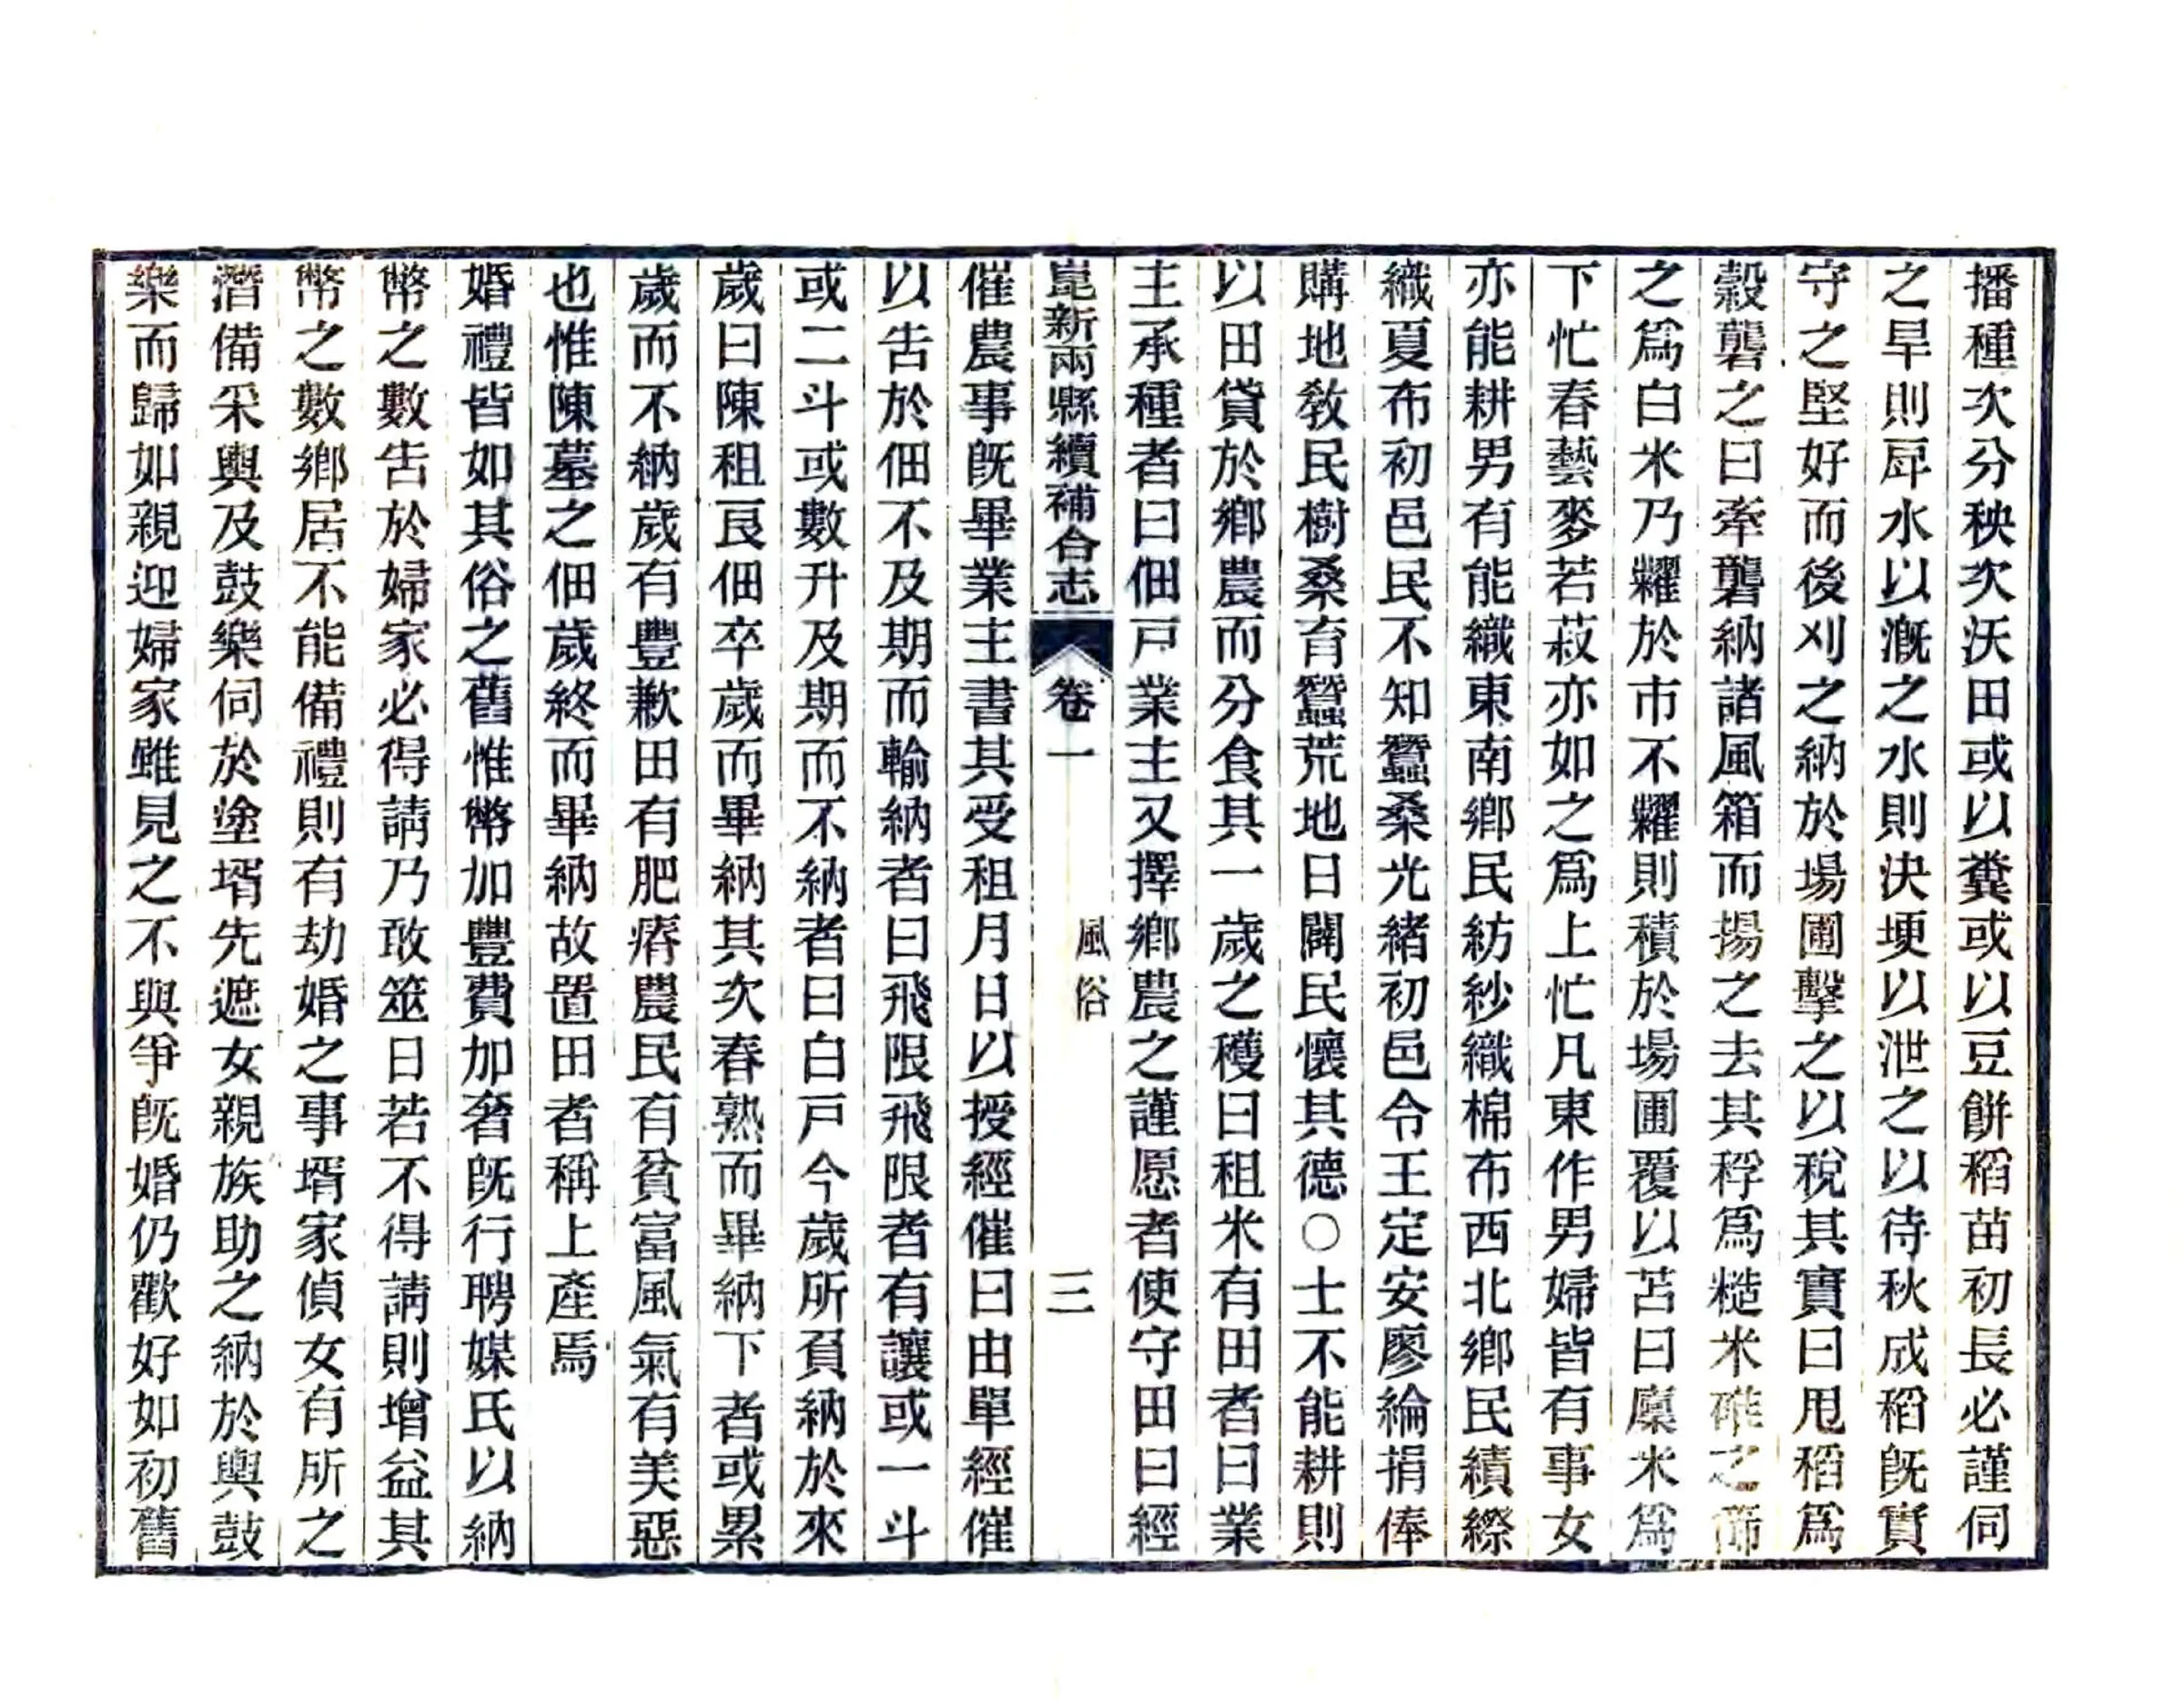 播種次分秧次沃田或以糞或以豆餠稻苗初長必謹伺
之旱則戽水以漑之水則決埂以泄之以待秋成稻旣實
守之堅好而後刈之納於場圃擊之以稅其實曰甩稻爲
穀礱之曰牽礱納諸風箱而揚之去其稃爲糙米碓之篩
之爲白米乃糶於市不糶則積於場圃覆以苫曰廩米爲
下忙春藝麥若菽亦如之爲上忙凡東作男婦皆有事女
亦能耕男有能織東南鄉民紡紗織棉布西北鄉民績繰
織夏布初邑民不知蠶桑光緒初邑令王定安廖綸捐俸
購地敎民樹桑育蠶荒地日闢民懷其德○士不能耕則
以田貸於鄉農而分食其一歲之穫曰租米有田者曰業
主承種者曰佃戸業主又擇鄉農之謹愿者使守田曰經
崑新兩縣續補合志 卷一 風俗 三
催農事旣畢業主書其受租月日以授經催曰由單經催
以告於佃不及期而輸納者曰飛限飛限者有讓或一斗
或二斗或數升及期而不納者曰白戸今歲所負納於來
歲曰陳租良佃卒歲而畢納其次春熟而畢納下者或累
歲而不納歲有豐歉田有肥瘠農民有貧富風氣有美惡
也惟陳墓之佃歲終而畢納故置田者稱上產焉
婚禮皆如其俗之舊惟幣加豐費加奢旣行聘媒氏以納
幣之數告於婦家必得請乃敢筮日若不得請則增益其
幣之數鄉居不能備禮則有劫婚之事壻家偵女有所之
潛備采輿及鼓樂伺於塗壻先遮女親族助之納於輿鼓
樂而歸如親迎婦家雖見之不與爭旣婚仍歡好如初舊